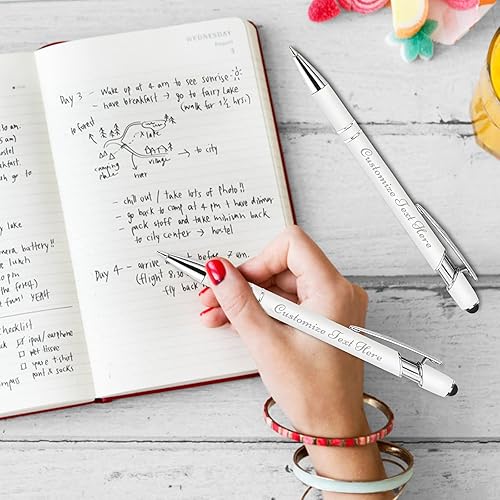 10 am.
kfast
stel
akfast.
h go to
lake
amera battery!!
e lunch
n the
forest)
s fun! YEAH
checklist
ipod/earphone
wet tissue
spare t-shirt
pant & socks
mpass
WEDNESDAY
3
Day 3 - Wake up at 4 am to see sunrise
- have breakfast → go to fairy lake
(walk for 1½ hrs)
to forest
lake
camping
village
→ to city
river
- chill out / take lots of photo!!
- go back to camp at 4 pm & have dinner
- pack stuff and take minivan back
to city center → hostel
Day 4 - arrive 7 am.
(flight 8
fly back
Customize Text Here
Customize Text Here